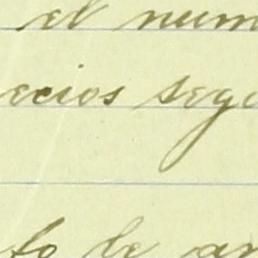 el num
ecios segu
to le an